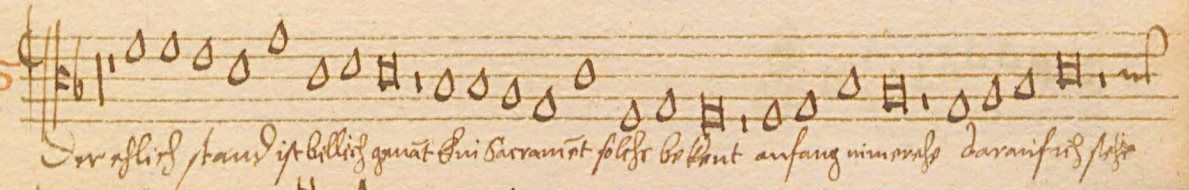 Der ehlich stand ist billich genāt Ein Sacramēt solchs bekent anfang nimer ehe darauf ich stehe